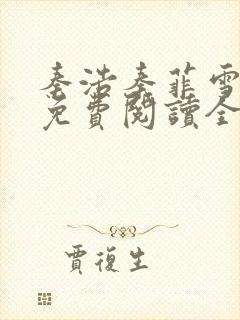 秦浩秦菲雪
免費閱讀全
賈復生